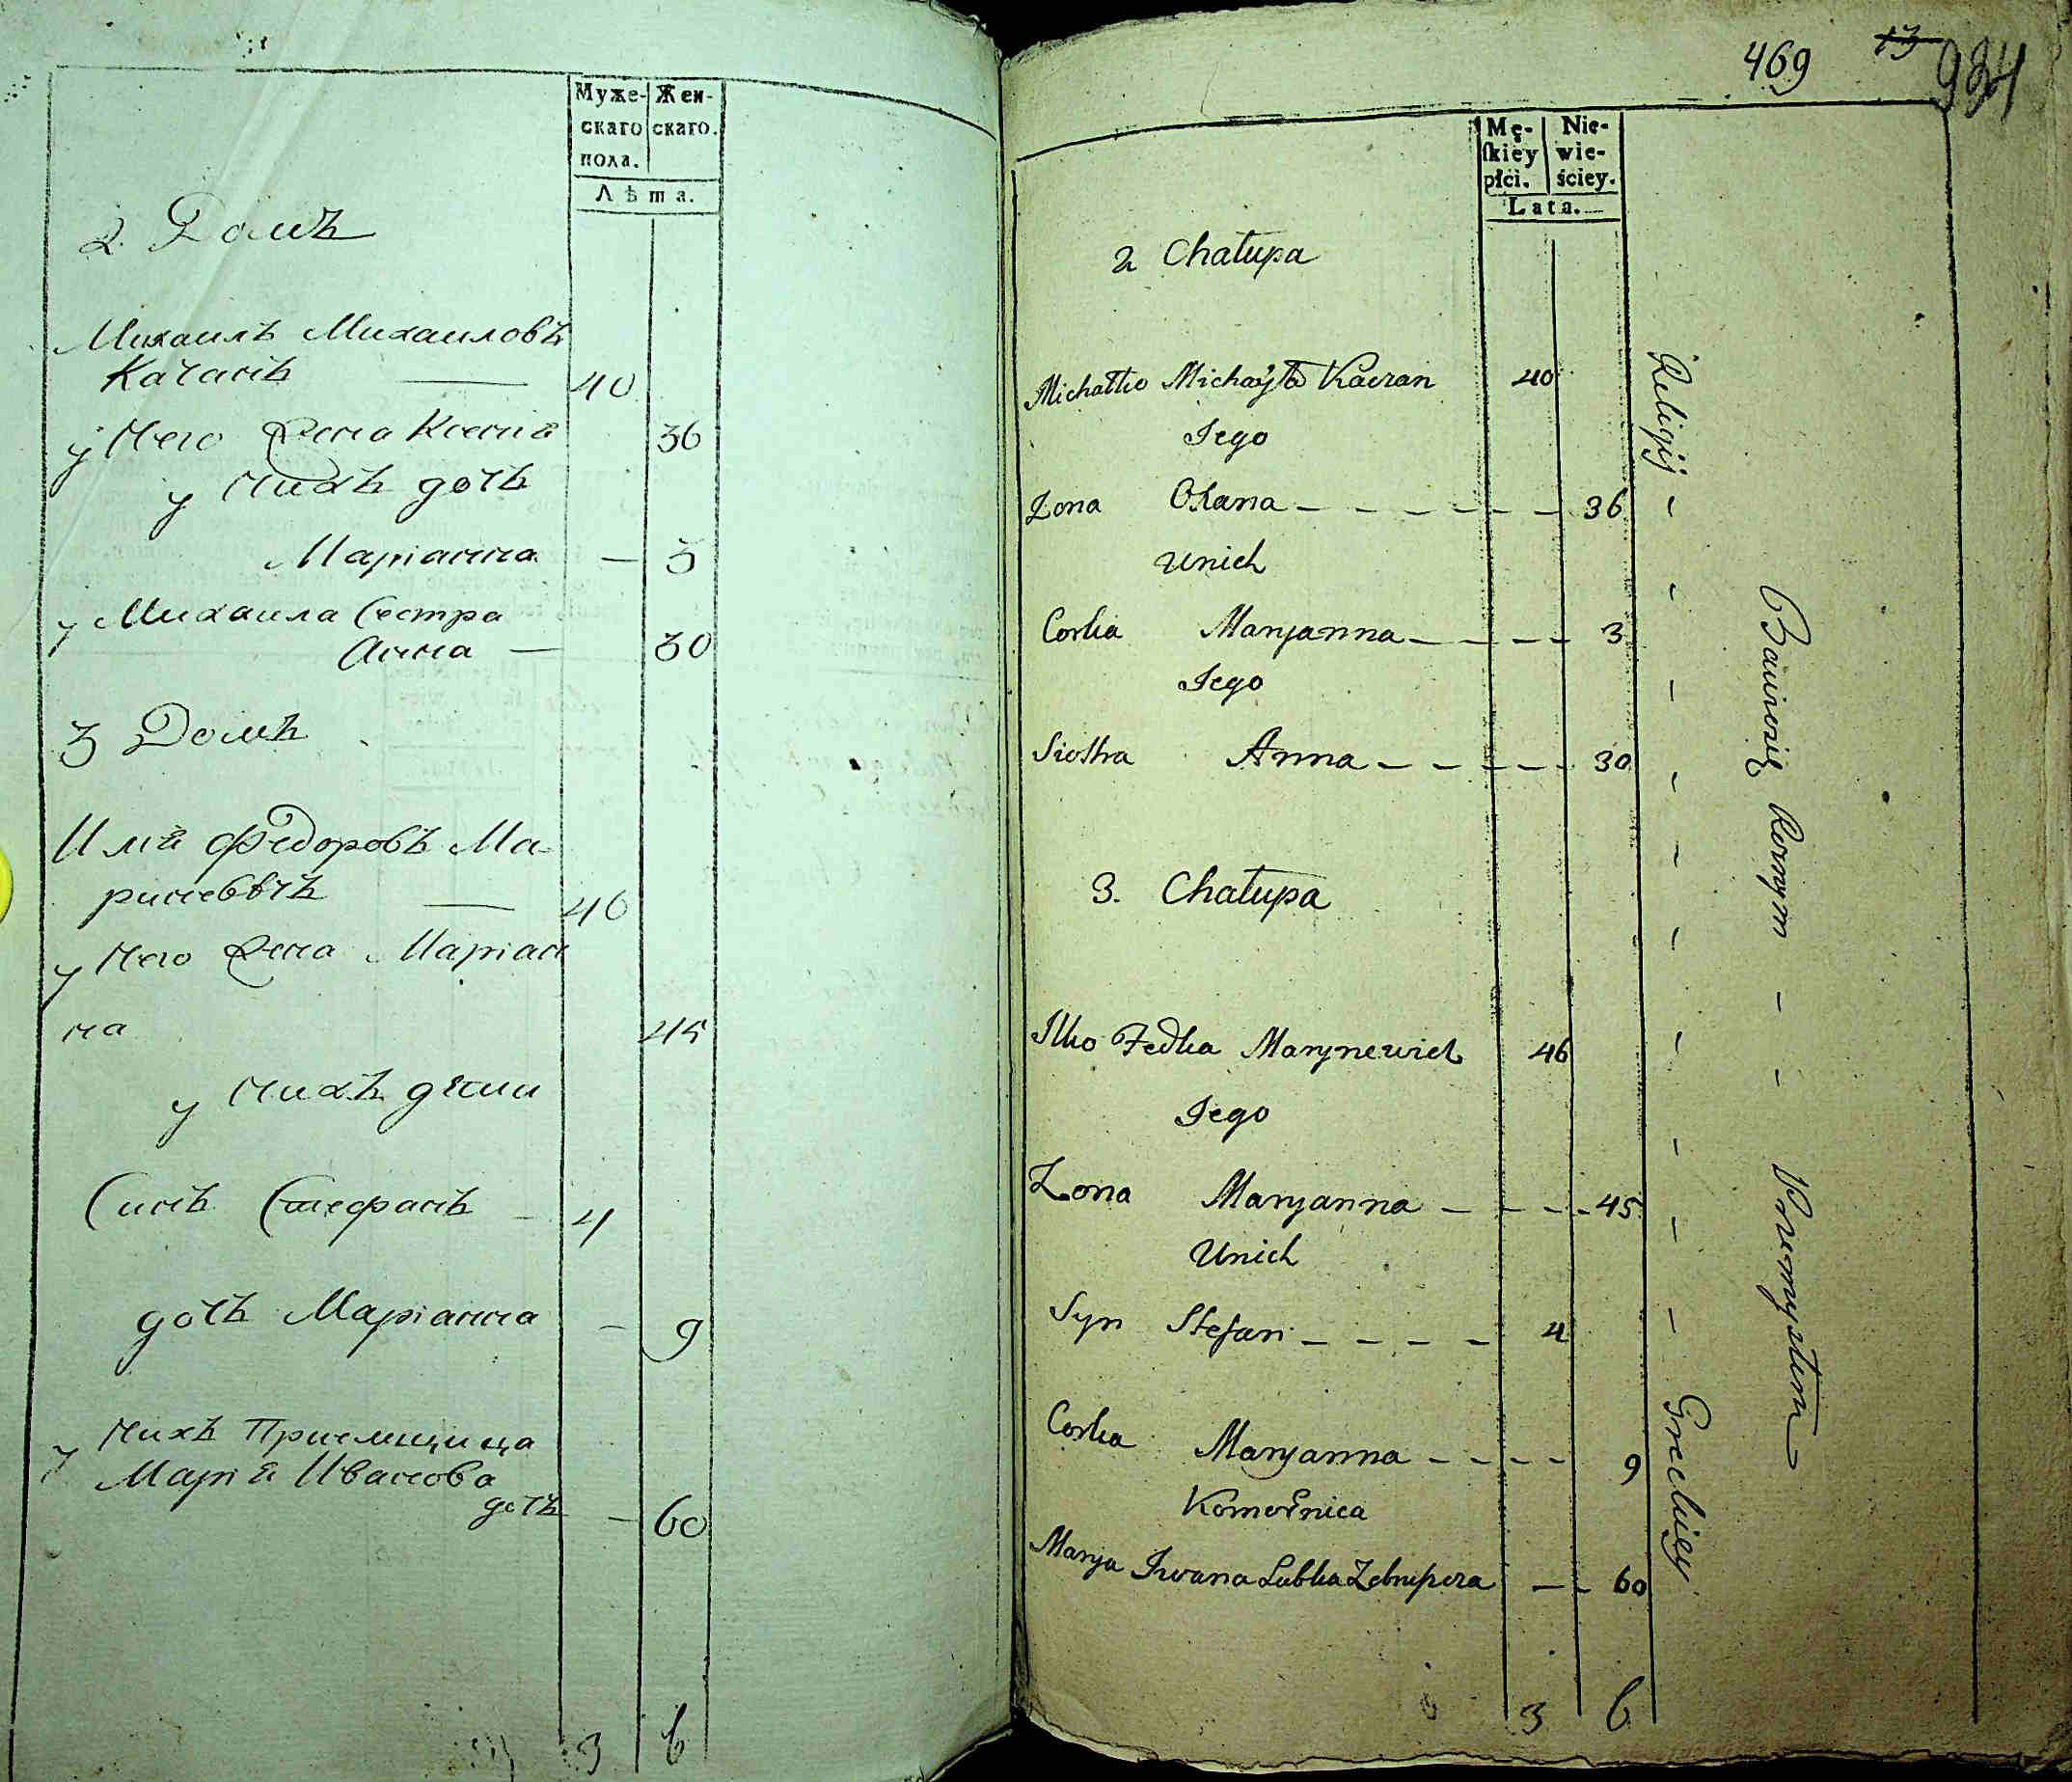 Муже- Жен-
скаго скаго.
пола.
Лѣта.
2. Домъ
Михаилъ Михаиловъ
Качанъ — 40
у Него Жена Ксенія 36
у нихъ дочь
Маріанна — 3
у Михаила Сестра
Анна — 30
3 Домъ
Илія Федоровъ Ма-
риневичъ — 46
у Него Жена Маріан
на 45
у нихъ дѣти
Синъ Стефанъ — 4
дочь Маріанна — 9
у нихъ Приемщица
Марія Иванова
дочь — 60
3 6
469 13 934
Mę- Nie-
skiey wie-
płci. ściey.
Lata.
2 Chałupa
Michałko Michayła Kaczan 40
Jego
Zona Oxana — — — — — 36
Unich
Corka Maryanna — — — — 3
Jego
Siostra Anna — — — — — 30
3. Chałupa
Ilko Fedka Marynewicz 46
Jego
Zona Maryanna — — — — 45
Unich
Syn Stefan — — — — 4
Corka Maryanna — — — — 9
Komornica
Marya Iwana Labka — — 60
3 6
Religij — — — — — — — — — — Greckiey
Rornym — —